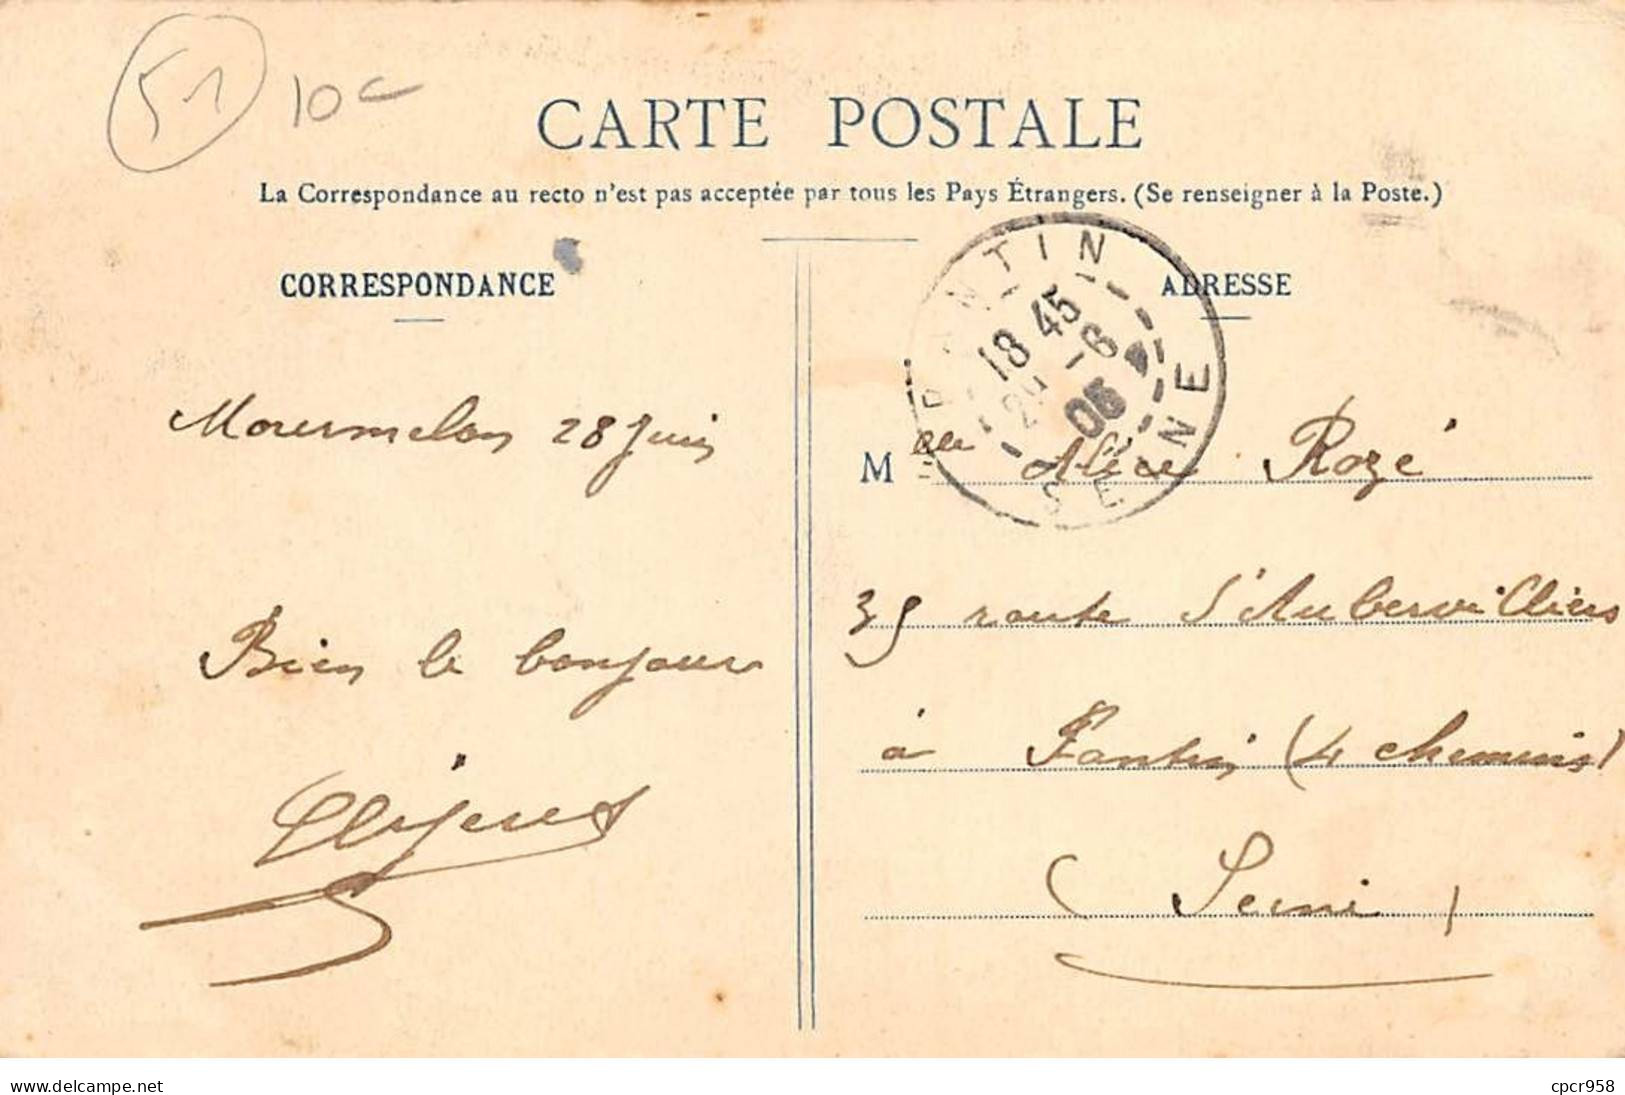 51 10c
CARTE POSTALE
La Correspondance au recto n'est pas acceptée par tous les Pays Étrangers. (Se renseigner à la Poste.)
CORRESPONDANCE
Mourmelon 28 Juin
Bien le bonjour
ADRESSE
PANTIN
18 45
29 -6
06
SEINE
Mlle Alice Rozé
35 route d'Aubervilliers
à Pantin (4 chemins)
(Seine)
www.delcampe.net
cpcr958